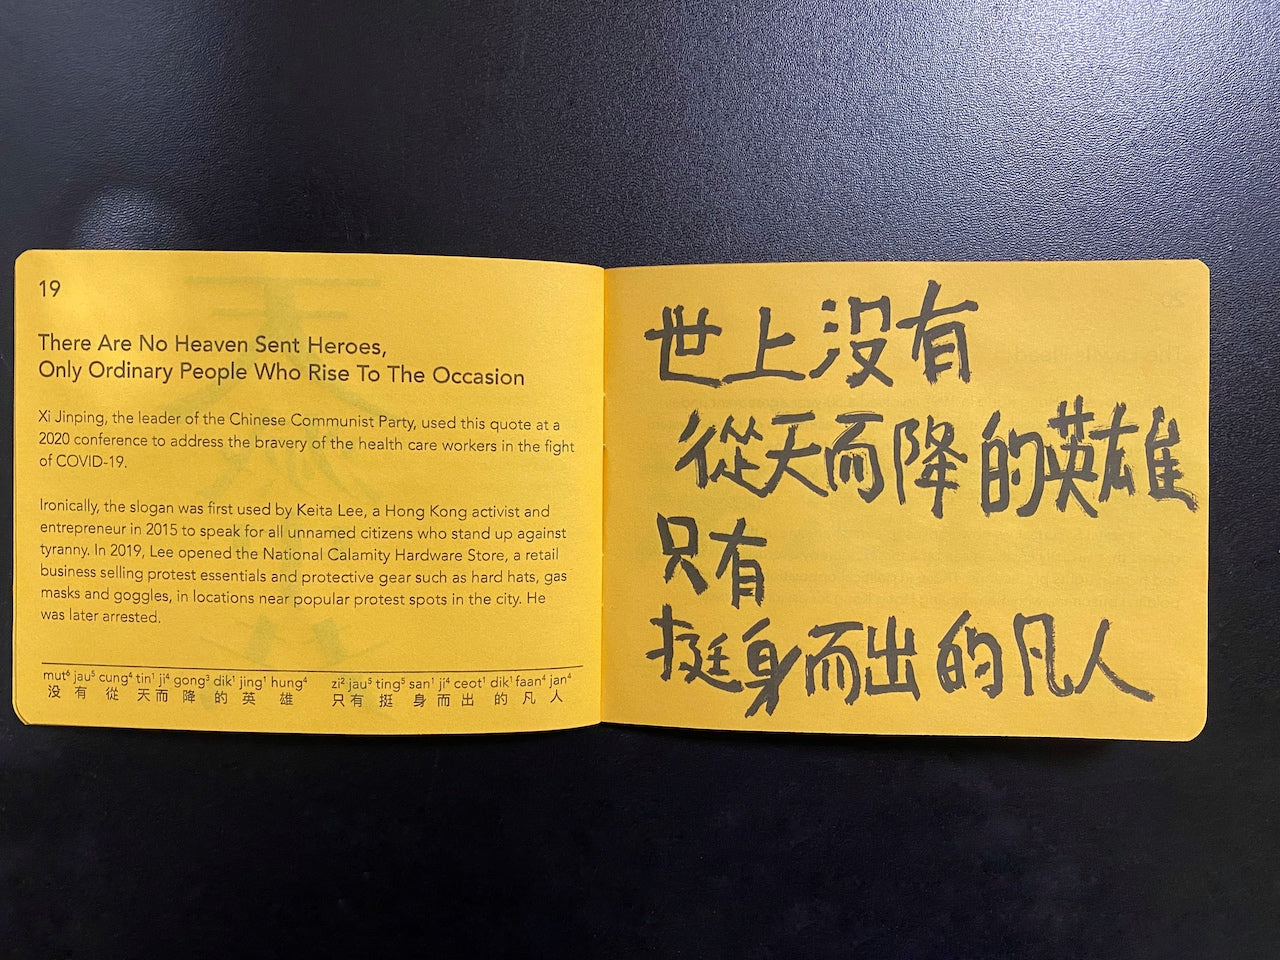 19
There Are No Heaven Sent Heroes,
Only Ordinary People Who Rise To The Occasion
Xi Jinping, the leader of the Chinese Communist Party, used this quote at a
2020 conference to address the bravery of the health care workers in the fight
of COVID-19.
Ironically, the slogan was first used by Keita Lee, a Hong Kong activist and
entrepreneur in 2015 to speak for all unnamed citizens who stand up against
tyranny. In 2019, Lee opened the National Calamity Hardware Store, a retail
business selling protest essentials and protective gear such as hard hats, gas
masks and goggles, in locations near popular protest spots in the city. He
was later arrested.
mut⁶ jau⁵ cung⁴ tin¹ ji⁴ gong³ dik¹ jing¹ hung⁴ zi² jau⁵ ting⁵ san¹ ji⁴ ceot¹ dik¹ faan⁴ jan⁴
没 有 從 天 而 降 的 英 雄 只 有 挺 身 而 出 的 凡 人
世上没有
從天而降的英雄
只有
挺身而出的凡人